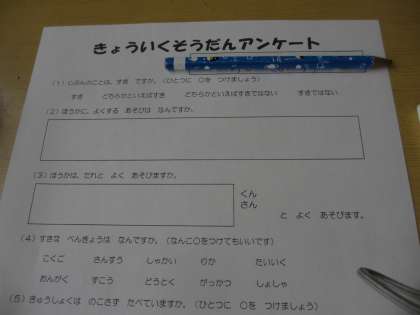 きょういくそうだんアンケート
(1) じぶんのことは、すき ですか。(ひとつに 〇を つけましょう)
すき どちらかといえばすき どちらかといえばすきではない すきではない
(2) ほうかに、よくする あそびは なんですか。
(3) ほうかは、だれと よく あそびますか。
くん
さん
と よく あそびます。
(4) すきな べんきょうは なんですか。(なんこ〇をつけてもいいです)
こくご さんすう しゃかい りか たいいく
おんがく ずこう どうとく がっかつ しょしゃ
(5) きゅうしょくは のこさず たべていますか。(ひとつに 〇を つけましょう)